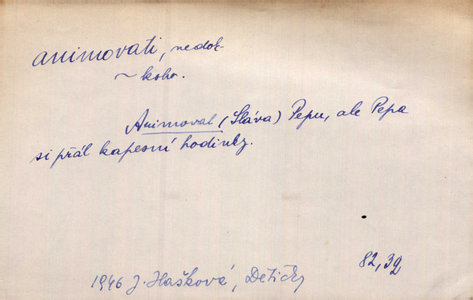 animovati, nedok.
~ koho.
Animoval (Sláva) Pepu, ale Pepa
si přál kapesní hodinky.
82,32
1946 J. Hašková, Dětičky